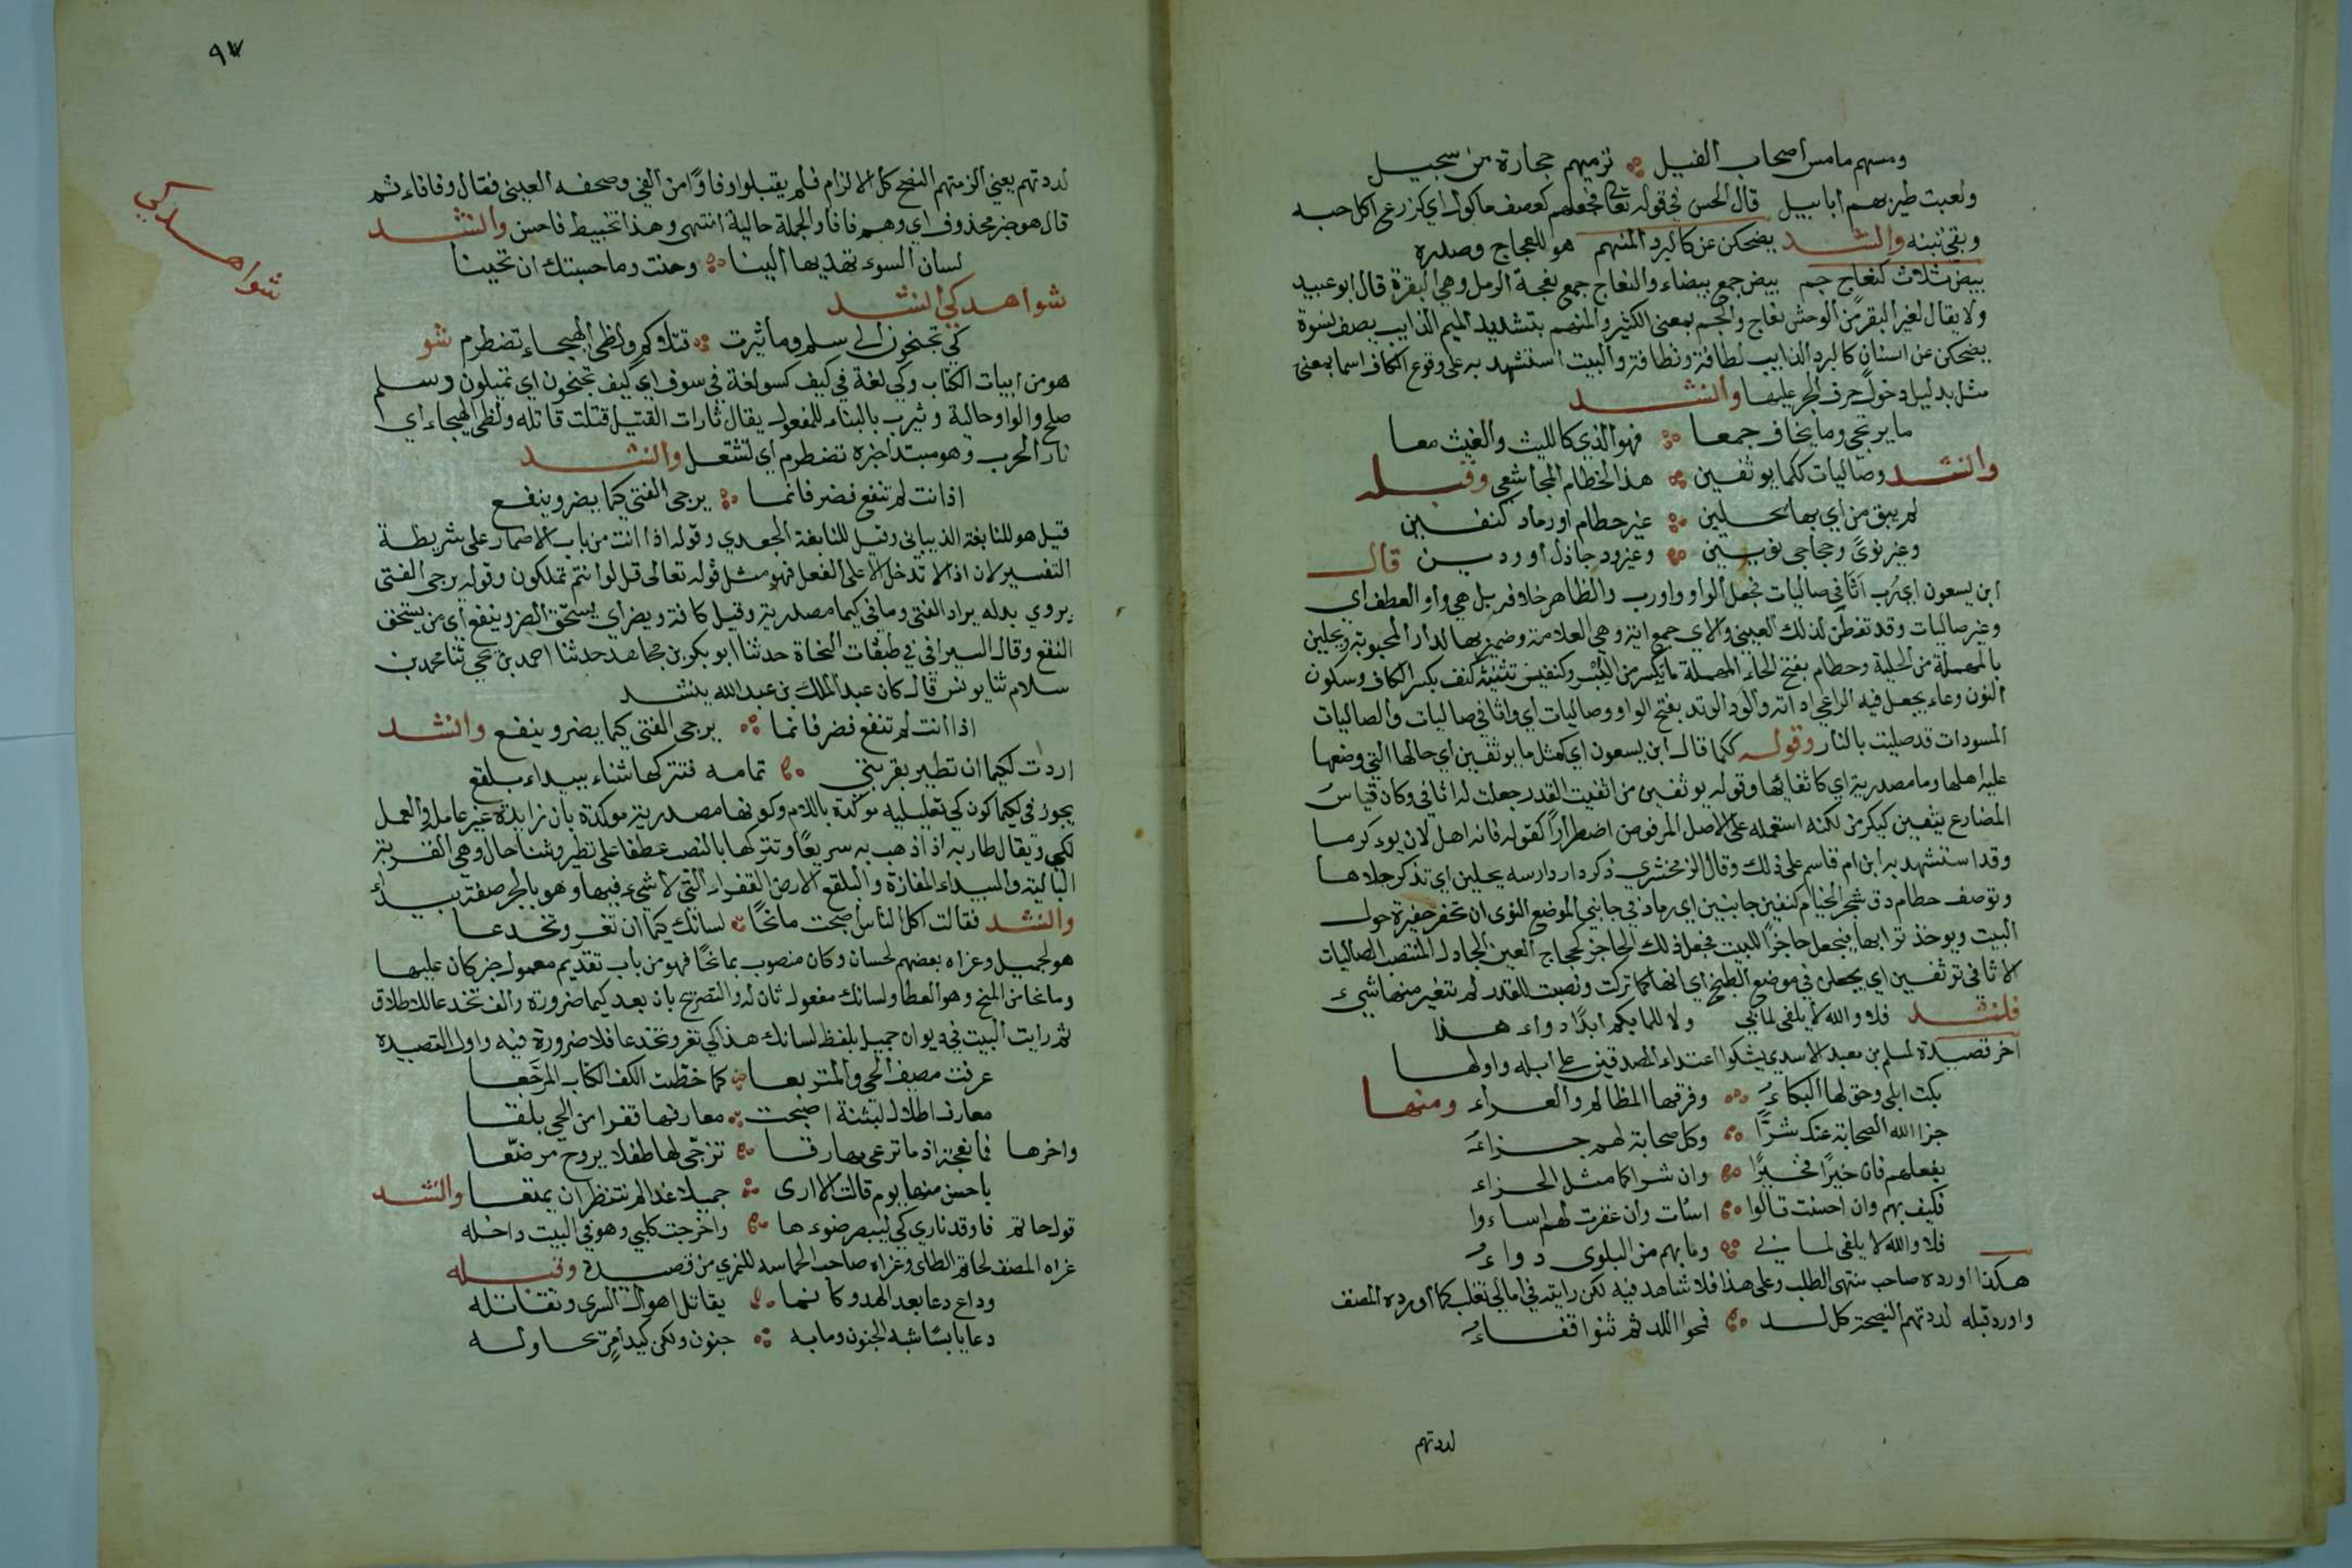 ومسهم مامس اصحاب الفيل ترميهم حجارة من سجيل
ولعبت طير بهم ابابيل قال الحسن في قوله تعالى فجعلهم كعصف ماكول اي كزرع اكل حبه
وبقي تبنه وانشد يضحكن عن كالبرد المنهم هو للعجاج وصدره
بيض ثلاث كنعاج جم بيض جمع بيضاء والنعاج جمع نعجة الرمل وهي البقرة قال ابو عبيد
ولا يقال لغير البقر من الوحش نعاج والجم بمعنى الكثير والمنهم بتشديد الميم الذايب يصف نسوة
يضحكن عن اسنان كالبرد الذايب لطافة ونظافة والبيت استشهد به على وقوع الكاف اسما بمعنى
مثل بدليل دخول حرف الجر عليها وانشد
ما يرتجى وما يخاف جمعا فهو الذي كالليث والغيث معا
وانشد وصاليات ككما يوثفين هذا لخطام المجاشعي وقبله
لم يبق من اي بها يحلين غير حطام ورماد كنفين
وغير نؤى وحجاجي نويين وغير ود جاذل او ودين قال
ابن يسعون اي رب اثافي صاليات فجعل الواو واو رب والظاهر خلافه بل هي واو العطف اي
وغير صاليات وقد تفطن لذلك العيني والاي جمع اية وهي العلامة وضمير بها لدار المحبوبة ويحلين
بالمهملة من الحلية وحطام بضم الحاء المهملة ما تكسر من اليبس وكنفين تثنية كنف بكسر الكاف وسكون
النون وعاء يجعل فيه الراعي اداته والود الوتد بفتح الواو وصاليات اي واثافي صاليات والصاليات
المسودات قد صليت بالنار وقوله ككما قال ابن يسعون اي كمثل ما يوثفين اي حالها التي وضعها
عليه اهلها وما مصدرية اي كاثفائها وقوله يوثفين من اثفيت القدر جعلت لها اثافي وكان قياس
المضارع يثفين كيكرمن لكنه استعمله على الاصل المرفوض اضطرارا كقوله فانه اهل لان يوكرما
وقد استشهد به ابن ام قاسم على ذلك وقال الزمخشري ذكر دار دارسه يحلين اي تذكر حلاها
وتوصف حطام دق شجر الخيام كنفين جانبين اي رماد في جانبي الموضع النؤى ان تحفر حفيرة حول
البيت ويوخذ ترابها فيجعل حاجزا للبيت فجعل ذلك الحاجز كحجاج العين الجادل المنتصب الصاليات
الاثافي توثفين اي يجعلن في موضع الطبخ اي انها كما تركت ونصبت للقدر لم يتغير منها شيء
فانشد فلا والله لا يلفى لما بي ولا للما بكم ابدا دواء هذا
اخر قصيدة لمسلم بن معبد الاسدي يشكوا اعتداء المصدقين على ابله واولها
بكت ابلي وحق لها البكاء وفرقها المظالم والعداء ومنها
جزا الله الصحابة عنك شرا وكل صحابة لهم جزاء
بفعلهم فان خيرا فخيرا وان شرا كما مثل الجزاء
فكيف بهم وان احسنت قالوا اسات وان غفرت لهم اساءوا
فلا والله لا يلفى لما بي وما بهم من البلوى دواء
هكذا اورده صاحب منتهى الطلب وعلى هذا فلا شاهد فيه لكن رايته في امالي ثعلب كما اورده المصنف
واورد قبله لددتهم النصيحة كل لد فمجوا اللد ثم ثنوا فقاءوا
لددتهم
٩٧
شواهد كي
لددتهم يعني الزمتهم النصح كل الالزام فلم يقبلوا وقاؤا من القي وصحفه العيني فقال وفاقاء ثم
قال هو خبر محذوف اي وهم فاقا والجملة حالية انتهى وهذا تخبيط فاحش وانشد
لسان السوء تهديها الينا وحنت وما حسبتك ان تحينا
شواهد كي انشد
كي تجنحون الى سلم وما ثئرت قتلاكم ولظى الهيجاء تضطرم شو
هو من ابيات الكتاب وكي لغة في كيف كسو لغة في سوف اي كيف تجنحون اي تميلون وسلم
صلح والواو حالية وثئرت بالبناء للمفعول يقال ثارت القتيل قتلت قاتله ولظى الهيجاء اي
نار الحرب وهو مبتدا خبره تضطرم اي تشتعل وانشد
اذا انت لم تنفع فضر فانما يرجى الفتى كيما يضر وينفع
قيل هو للنابغة الذبياني وقيل للنابغة الجعدي وقوله اذا انت من باب الاضمار على شريطة
التفسير لان اذا لا تدخل الا على الفعل فهو مثل قوله تعالى قل لو انتم تملكون وقوله يرجى الفتى
يروي بدله يراد الفتى وما في كيما مصدرية وقيل كافة ويضر اي يستحق الضر وينفع اي من يستحق
النفع وقال السيرافي في طبقات النحاة حدثنا ابو بكر بن مجاهد حدثنا احمد بن يحيى ثنا محمد بن
سلام ثنا يونس قال كان عبد الملك بن عبد الله ينشد
اذا انت لم تنفع فضر فانما يرجى الفتى كيما يضر وينفع وانشد
اردت لكيما ان تطير بقربتي تمامه فتتركها شناء ببيداء بلقع
يجوز في لكيما كون كي تعليليه موكدة باللام وكونها مصدرية موكدة بان زايدة غير عامله والعمل
لكي ويقال طار به اذا ذهب به سريعا وتتركها بالنصب عطفا على تطير وشنا حال وهي القربة
البالية والبيداء المفازة والبلقع الارض القفراء التي لا شيء فيها وهو بالجر صفة بيداء
وانشد فقالت اكل الناس اصبحت مانحا لسانك كيما ان تغر وتخدعا
هو لجميل وعزاه بعضهم لحسان وكان منصوب بمانحا فهو من باب تقديم معمول خبر كان عليها
ومانحا من المنح وهو العطا ولسانك مفعول ثان له والتصريح بان بعد كيما ضرورة والف تخدعا للاطلاق
ثم رايت البيت في ديوان جميل بلفظ لسانك هذا كي تغر وتخدعا فلا ضرورة فيه واول القصيدة
عرفت مصيف الحي والمتربعا كما خطت الكف الكتاب المرجعا
معارف اطلال لبثنة اصبحت معارفها قفرا من الحي بلقعا
واخرها فما نعجة ادما ترعى مهارقا تزجي لها طفلا يروح مرضعا
باحسن منها يوم قالت الا ارى جميلا غدا لم ننتظر ان يمنعا وانشد
قول حاتم فاوقد ناري كي ليبصر ضوءها واخرجت كلبي وهو في البيت داخله
عزاه المصنف لحاتم الطاي وعزاه صاحب الحماسه للنمري من قصيدة وقبله
وداع دعا بعد الهدو كانما يقاتل اهوال السرى وتقاتله
دعا يابسا شبه الجنون وما به جنون ولكن كيد امر يحاوله